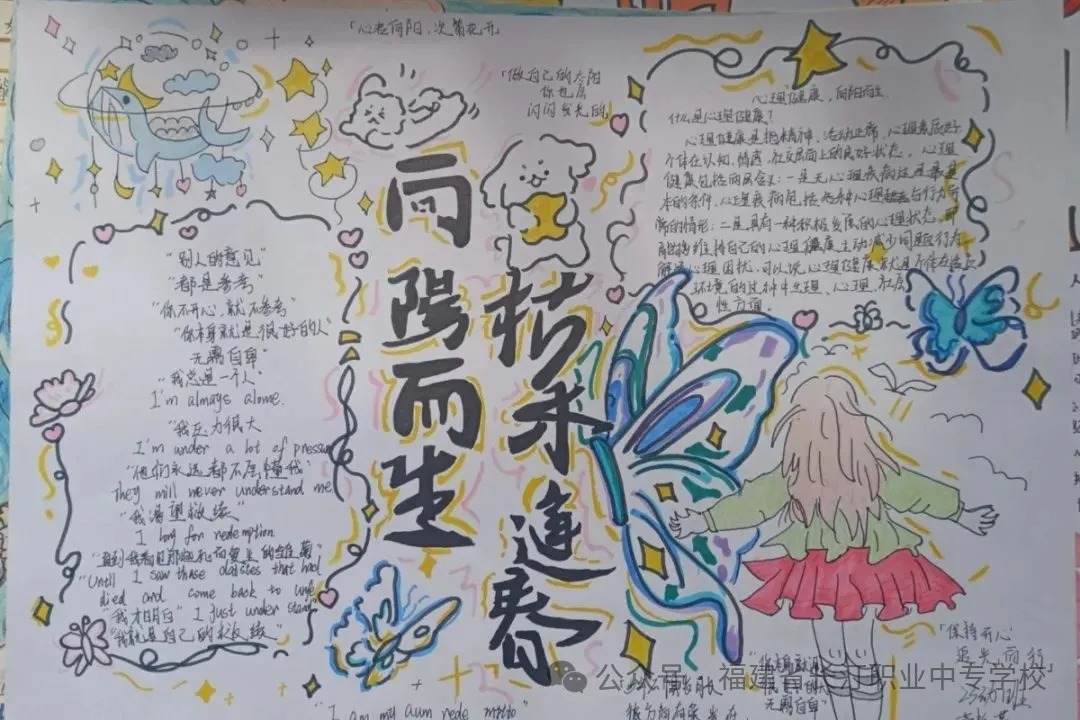 「心若向阳,次第花开
「做自己的太阳
你也会
闪闪发光的
向阳而生
枯木逢春
心理健康,向阳而生
什么是心理健康?
心理健康是指精神、活动正常、心理素质好
个体在认知、情感、社交层面上的良好状态。心理
健康包括两层含义:一是无心理疾病这是最基
本的条件,心理疾病包括各种心理与行为异
常的情形;二是具有一种积极发展的心理状态,即
能够维持自己的心理健康主动减少问题行为
解决心理困扰,可以说心理健康就是个体在适应
环境的过程中生理、心理、社会
性方面。
"别人的意见"
"都是参考"
"你不开心,就不参考"
"你本身就是很好的人"
无需自卑"
"我总是一个人"
I'm always alone.
"我压力很大
I'm under a lot of pressure
"他们永远都不会懂我"
they will never understand me
"我渴望救赎"
I long for redemption
"直到我看见那死而复生的雏菊"
"Until I saw those daisies that had
died and come back to
"我才明白" I just understand
"我就是自己的救赎"
"I am my own rede
「保持开心
追光而行
无需自卑"
公众号 · 福建省长汀职业中专学校